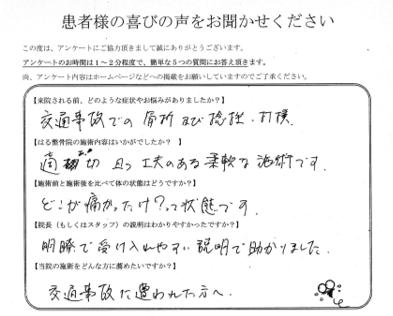 患者様の喜びの声をお聞かせください
この度は、アンケートにご協力頂きまして誠にありがとうございます。
アンケートのお時間は1~2分程度で、簡単な5つの質問にお答え頂きます。
尚、アンケート内容はホームページなどへの掲載をお願いしていますのでご了承ください。
【来院される前、どのような症状やお悩みがありましたか?】
交通事故での骨折及び捻挫、打撲.
【はる整骨院の施術内容はいかがでしたか?】
適切 且つ 工夫のある柔軟な施術です.
【施術前と施術後を比べて体の状態はどうですか?】
どこが痛かったけ?って状態です.
【院長(もしくはスタッフ)の説明はわかりやすかったですか?】
明瞭で受け入れやすい説明で助かりました.
【当院の施術をどんな方に薦めたいですか?】
交通事故に遭われた方へ.